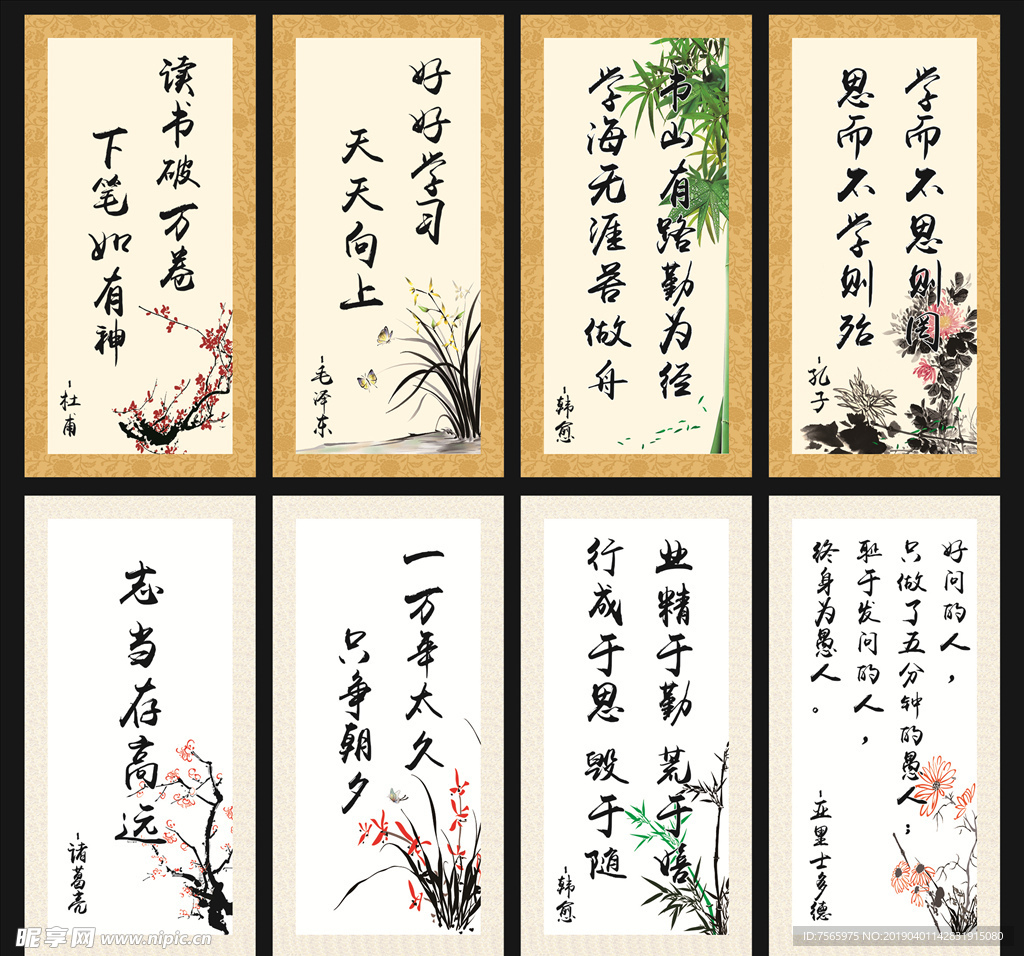 读书破万卷
下笔如有神
-杜甫
好好学习
天天向上
-毛泽东
书山有路勤为径
学海无涯苦做舟
-韩愈
学而不思则罔
思而不学则殆
-孔子
志当存高远
-诸葛亮
一万年太久
只争朝夕
业精于勤 荒于嬉
行成于思 毁于随
-韩愈
好问的人，
只做了五分钟的愚人；
耻于发问的人，
终身为愚人。
-亚里士多德
昵享网 www.nipic.cn
ID:7565975 NO:20190401142831915080